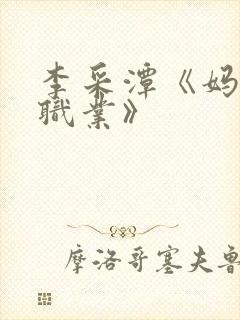 李采潭《妈
職業》
摩洛哥塞夫鲁